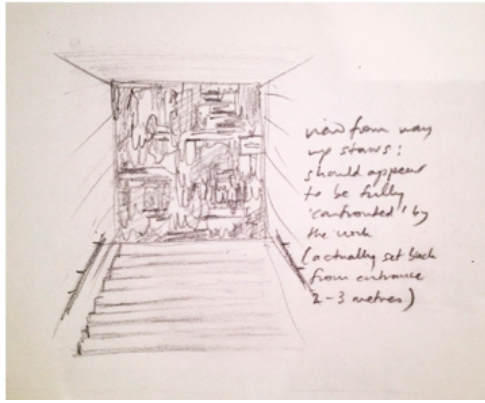 view from way
up stairs:
should appear
to be fully
'confronted' by
the work
(actually set back
from entrance
2-3 metres)